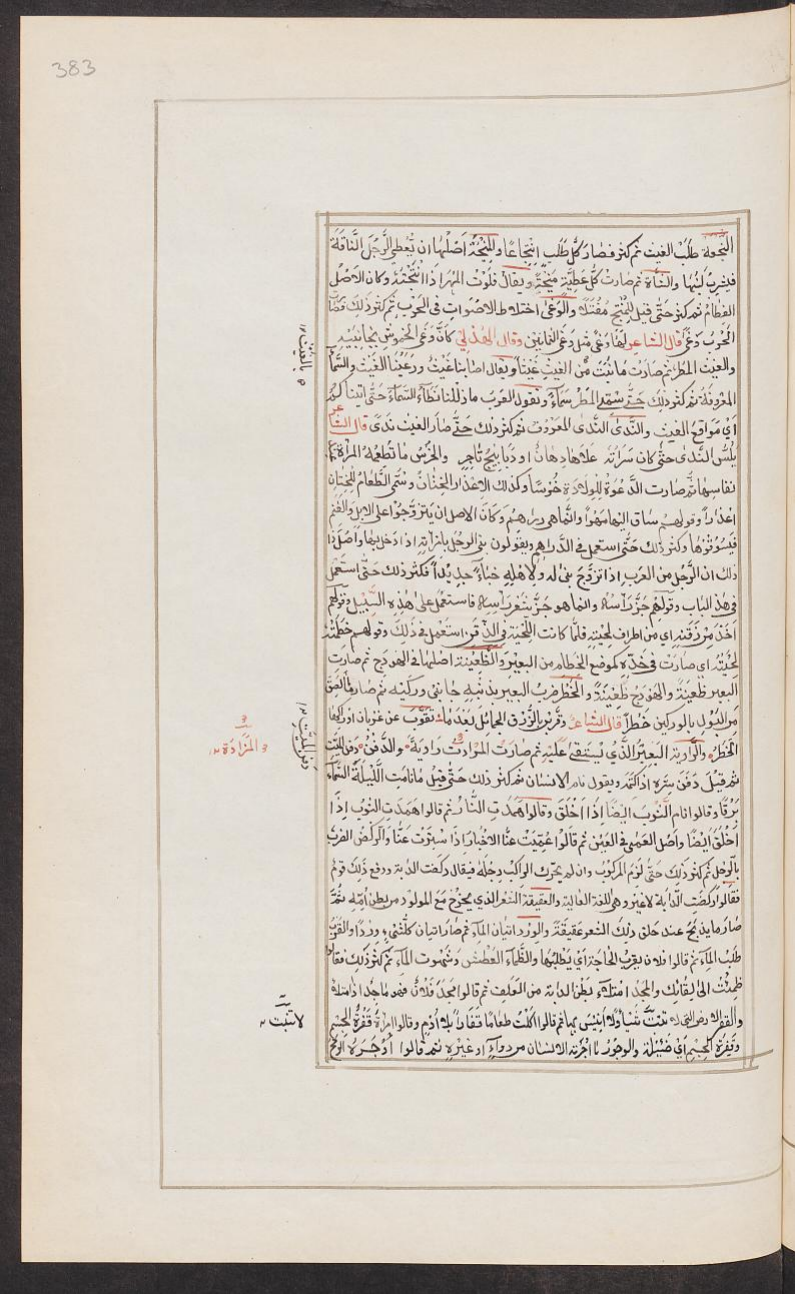 383
النجعة طلب الغيث ثم كثر فصار كل طلب انتجاعا والمنيحة اصلها ان يعطي الرجل الناقة
فيشرب لبنها والشاة ثم صارت كل عطية منيحة ويقال فلوت المهر اذا انتجته وكان الاصل
الفطام ثم كثر حتى قيل للمنتج مفتلا والوغى اختلاط الاصوات في الحرب ثم كثر ذلك فصارت
الحرب وغى قال الشاعر لها وغى مثل وغى الثمانين وقال الهذلي كأن وغى الخموش بجانبيه
والغيث المطر ثم صارت ما نبت من الغيث غيثا ويقال اصابنا غيث ورعينا الغيث والسماء
المعروفة ثم كثر ذلك حتى سمي المطر سماء وتقول العرب ما زلنا نطاء السماء حتى اتيناكم
اي مواقع الغيث والندى الندى المعروف ثم كثر ذلك حتى صار الغيث ندى قال الشاعر
يلس الندى حتى كان سراته علاها دهان او ديابيج تاجر والخرس ما تطعمه المراة عند
نفاسها ثم صارت الدعوة للولادة خرسا وكذلك الاعذار الختان وسمي الطعام للختان
اعذارا وقولهم ساق اليها مهرا وانما هي دراهم وكان الاصل ان يتزوجوا على الابل والغنم
فيسوقوها وكثر ذلك حتى استعمل في الدراهم ويقولون بنى الرجل بامرأته اذا دخل بها واصل ذا
ذلك ان الرجل من العرب اذا تزوج بني له ولاهله خباء جديدا فكثر ذلك حتى استعمل
في هذا الباب وقولهم جز رأسه وانما هو جز شعر راسه فاستعمل على هذه السبيل وقولهم
اخذ من ذقنه اي من اطراف لحيته فلما كانت اللحية في الذقن استعمل في ذلك وقولهم خطمته
لحيته اي صارت في خده كموضع الخطام من البعير والظعينة اصلها في الهودج ثم صارت
البعير ظعينة والهودج ظعينة والخطر ضرب البعير بذنبه جانبي وركيه ثم صار ما لصق
من البول بالوركين خطرا قال الشاعر وقربن بالزرق الجمائل بعد ما تقوب عن غربان اوراكها
الخطر والراوية البعير الذي يستقى عليه ثم صارت المزادة راوية والدفن دفن الميت
ثم قيل دفن سره اذا كتمه ويقول نام الانسان ثم كثر ذلك حتى قيل ما نامت الليلة السماء
برقا وقالوا نام الثوب ايضا اذا اخلق وقالوا همدت النار ثم قالوا همدت الثوب اذا
اخلق ايضا واصل العمى في العين ثم قالوا عميت عنا الاخبار اذا سترت عنا والركض الضرب
بالرجل ثم كثر ذلك حتى لزم المركوب وان لم يحرك الراكب رجله فيقال ركضت الدابة ودفع ذلك قوم
فقالوا ركضت الدابة لا غير وهي اللغة العالية والعقيقة الشعر الذي يخرج مع المولود من بطن امه ثم
صار ما يذبح عند حلق ذلك الشعر عقيقة والورد اتيان الماء ثم صار اتيان كل شيء وردا والقرب
طلب الماء ثم قالوا فلان يقرب الحاجة اي يطلبها والظماء العطش وشهوت الماء ثم كثر ذلك فقالوا
ظمئت الى لقائك والمجد امتلاء بطن الدابة من العلف ثم قالوا مجد فلان فهو ماجد اذا امتلا
والقفر الارض التي لا تنبت شيا ولا انيس بها ثم قالوا اكلت طعاما قفارا بلا ادم وقالوا امراة قفرة الجسم
وقفرة الجسم اي ضئيلة والوجور ما اوجرته الانسان من دواء او غيره ثم قالوا اوجره الرمح
بالغيث
دفن الميت
المزادة
لا تنبت